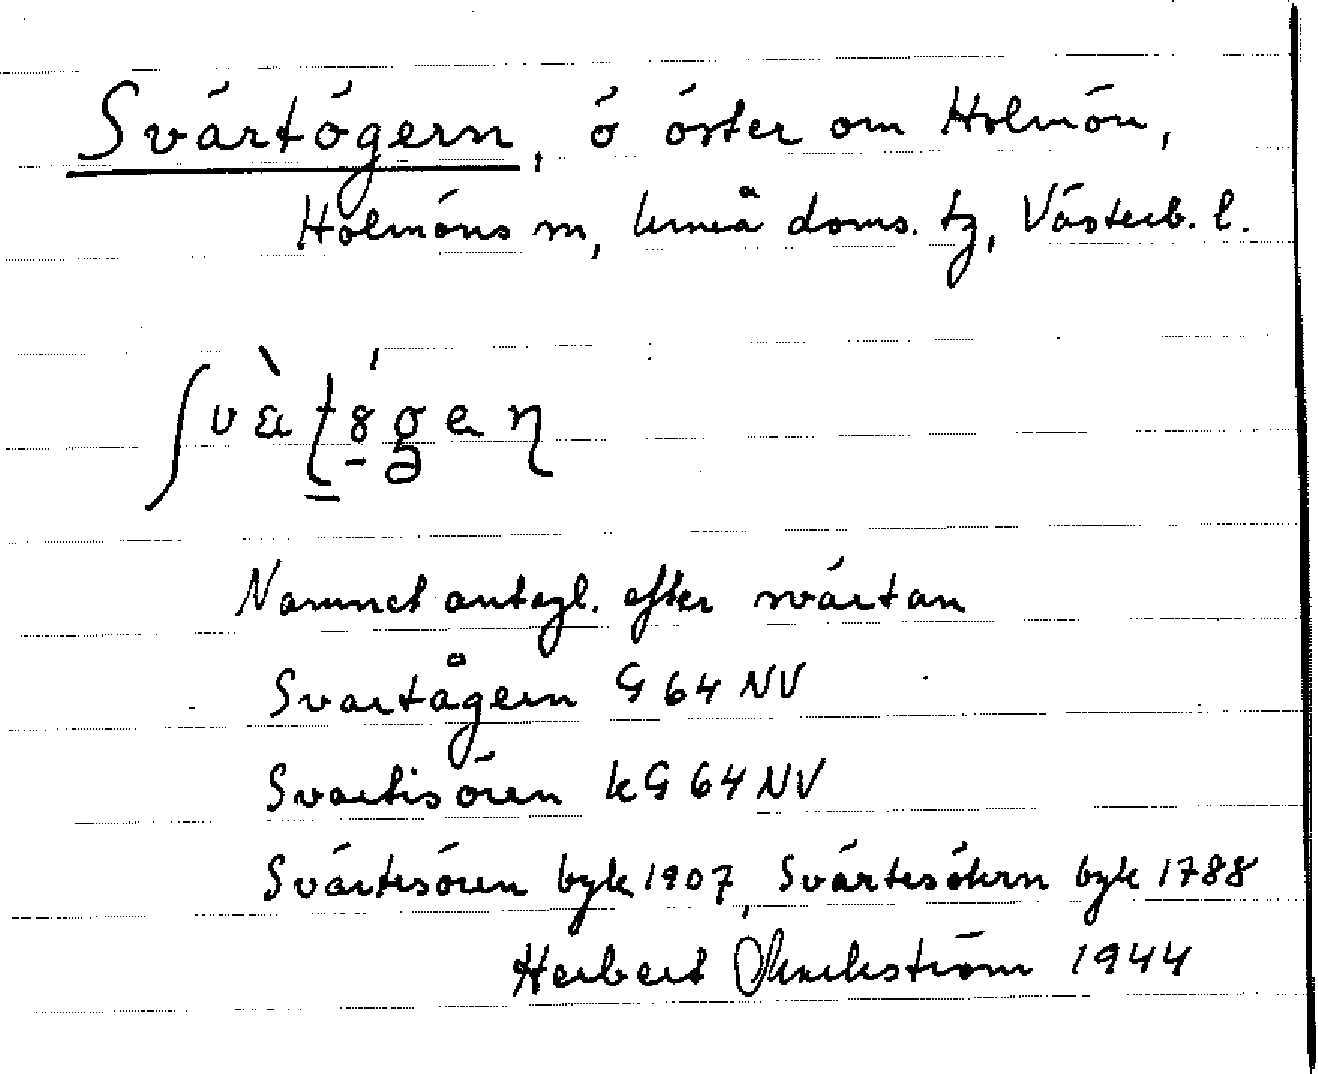 Svärtögern, ö öster om Holmön,
Holmöns sn, Umeå doms. tg, Västerb. l.
Namnet antagl. efter svärtan
Svartågern G 64 NV
Svartisören kG 64 NV
Svärtesören byk 1907, Svärtesökrn byk 1788
Herbert 1944